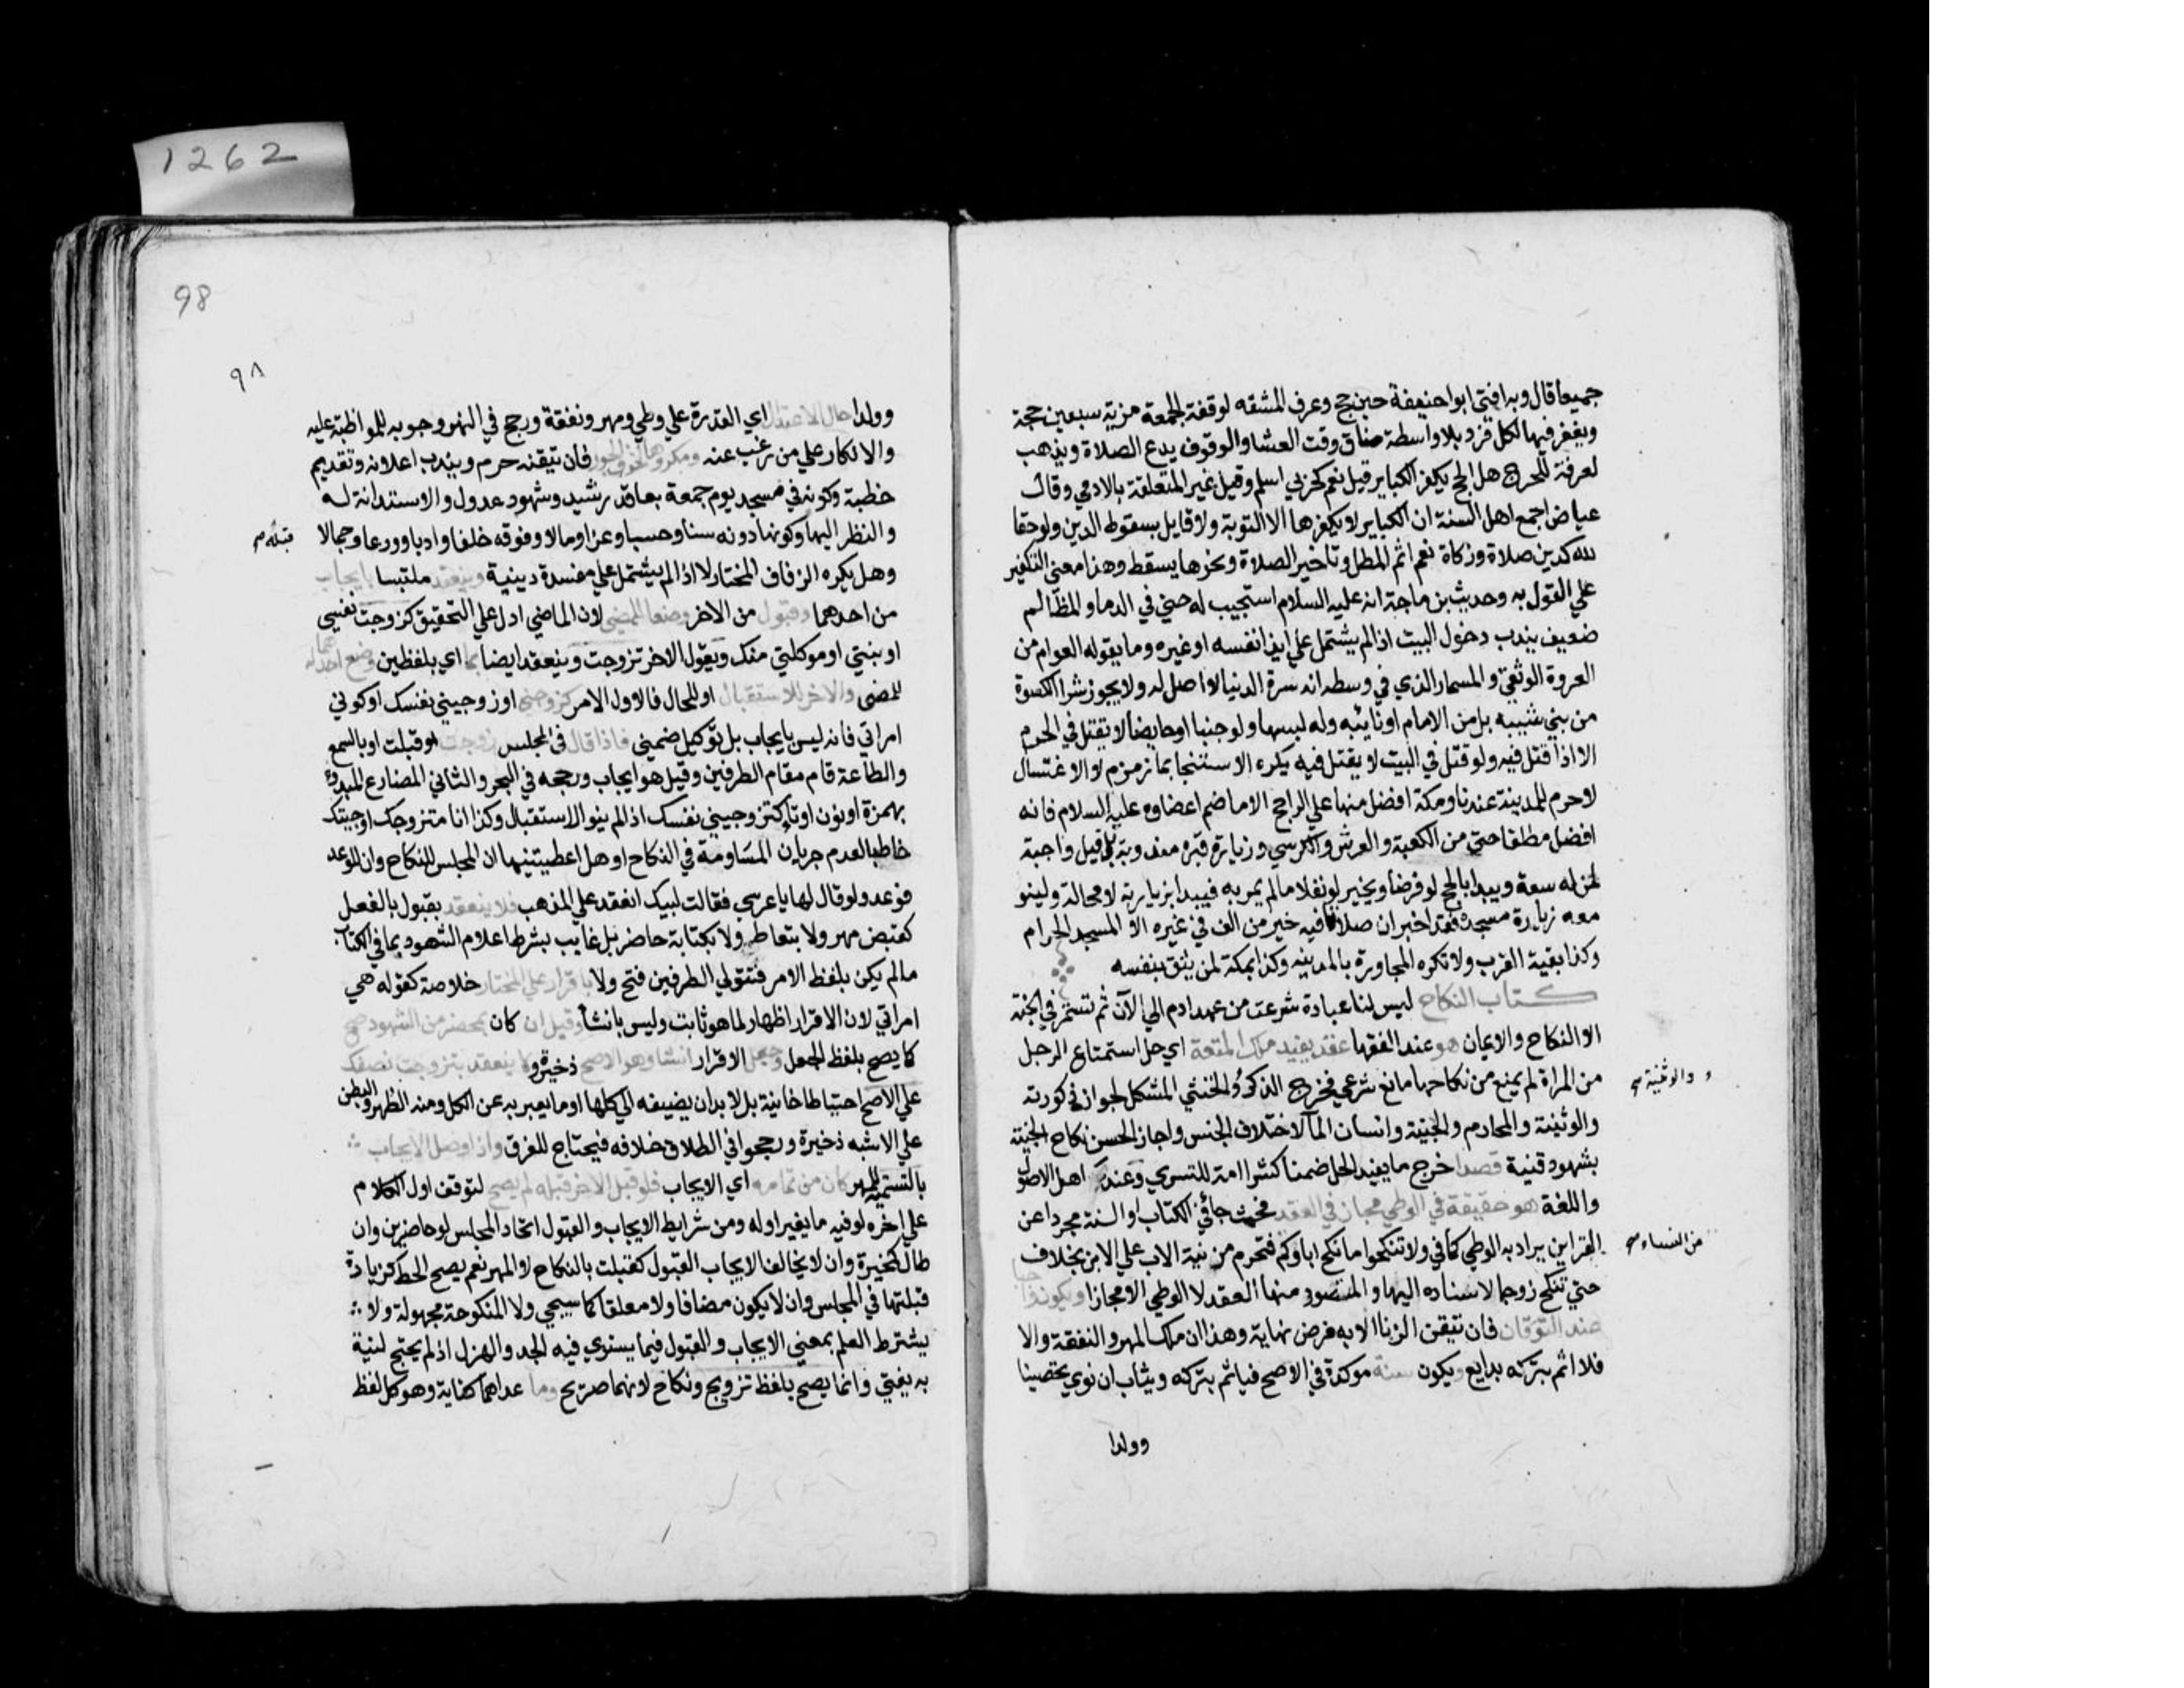 1262
جميعا قال وبه افتى ابوا حنيفة حين حج وعرف المشقه لوقفة الجمعة مزية سبعين حجة
ويغفر فيها لكل فرد بلا واسطة ضاق وقت العشا والوقوف يدع الصلاة ويذهب
لعرفة للحرج هل الحج يكفر الكباير قيل نعم كحربي اسلم وقيل غير المتعلقة بالادمي وقال
عياض اجمع اهل السنة ان الكباير لا يكفرها الا التوبة ولا قايل بسقوط الدين ولو حقا
لله كدين صلاة وزكاة نعم اثم المطل وتاخير الصلاة ونحوها يسقط وهذا معنى التكفير
علي القول به وحديث بن ماجة انه عليه السلام استجيب له حتي في الدما والمظالم
ضعيف يندب دخول البيت اذا لم يشتمل علي ايذا نفسه او غيره وما يقوله العوام من
العروة الوثقي والمسمار الذي في وسطه انه سرة الدنيا لا اصل له ولا يجوز شرا الكسوة
من بني شيبيه بل من الامام او نايبه وله لبسها ولو جنبا او حايضا لا يقتل في الحرم
الا اذا قتل فيه ولو قتل في البيت لا يقتل فيه يكره الاستنجا بما زمزم لا الاغتسال
لا حرم للمدينة عندنا ومكة افضل منها علي الراجح الا ما ضم اعضاوه عليه السلام فانه
افضل مطلقا حتي من الكعبة والعرش والكرسي وزيارة قبره مندوبة بل قيل واجبة
لمن له سعة ويبدا بالحج لو فرضا ويخير لو نفلا ما لم يمر به فيبدا بزيارته لا محالة ولينو
معه زيارة مسجده فقد اخبر ان صلاة فيه خير من الف في غيره الا المسجد الحرام
وكذا بقية القرب ولا تكره المجاورة بالمدينه وكذا بمكة لمن يثق بنفسه
كتاب النكاح ليس لنا عبادة شرعت من عهد ادم الي الآن ثم تستمر في الجنة
الا النكاح والايمان هو عند الفقها عقد يفيد ملك المتعة اي حل استمتاع الرجل
من المراة لم يمنع من نكاحها مانع شرعي فخرج الذكر والخنثي المشكل لجواز ذكورته
والوثنية والمحارم والجنية وانسان الما لاختلاف الجنس واجاز الحسن نكاح الجنية
والوثنية صح
بشهود قنية قصدا خرج ما يفيد الحل ضمنا كشرا امة للتسري وعند اهل الاصول
واللغة هو حقيقة في الوطي مجاز في العقد فحيث جا في الكتاب او السنة مجردا عن
القراين يراد به الوطي كما في ولا تنكحوا ما نكح اباوكم فتحرم مزنية الاب علي الابن بخلاف
من النساء صح
حتي تنكح زوجا لاسناده اليها والمتصور منها العقد لا الوطي الا مجازا ويكون واجبا
عند التوقان فان تيقن الزنا الا به فرض نهاية وهذا ان ملك المهر والنفقة والا
فلا اثم بتركه بدايع ويكون سنة موكدة في الاصح فياثم بتركه ويثاب ان نوي تحصينا
وولدا
98
٩٨
وولدا حال الاعتدال اي القدرة علي وطي ومهر ونفقة ورجح في النهر وجوبه للمواظبة عليه
والانكار علي من رغب عنه ومكروها لخوف الجور فان تيقنه حرم ويندب اعلانه وتقديم
خطبة وكونه في مسجد يوم جمعة بعاقد رشيد وشهود عدول والاستدانة له
والنظر اليها وكونها دونه سنا وحسبا وعزا ومالا وفوقه خلقا وادبا وورعا وجمالا
قبله صح
وهل يكره الزفاف المختار لا اذا لم يشتمل علي مفسدة دينية وينعقد ملتبسا بايجاب
من احدهما وقبول من الاخر وضعا للمضي لان الماضي ادل علي التحقيق كزوجت نفسي
او بنتي او موكلتي منك ويقول الاخر تزوجت وينعقد ايضا بما اي بلفظين وضع احدهما
للمضي والاخر للاستقبال او للحال فالاول الامر كزوجني او زوجيني نفسك او كوني
امراتي فانه ليس بايجاب بل توكيل ضمني فاذا قال في المجلس زوجت او قبلت او بالسمع
والطاعة قام مقام الطرفين وقيل هو ايجاب ورجحه في البحر والثاني المضارع المبدوء
بهمزة او نون او تا كتزوجيني نفسك اذا لم ينو الاستقبال وكذا انا متزوجك او جيتك
خاطبا لعدم جريان المساومة في النكاح او هل اعطيتنيها ان المجلس للنكاح وان للوعد
فوعد ولو قال لها يا عرسي فقالت لبيك انعقد علي المذهب فلا ينعقد بقبول بالفعل
كقبض مهر ولا بتعاط ولا بكتابة حاضر بل غايب بشرط اعلام الشهود بما في الكتاب
ما لم يكن بلفظ الامر فتتولي الطرفين فتح ولا باقرار علي المختار خلاصة كقوله هي
امراتي لان الاقرار اظهار لما هو ثابت وليس بانشا وقيل ان كان بمحضر من الشهود صح
كما يصح بلفظ الجعل وجعل الاقرار انشا وهو الاصح ذخيرة ولا ينعقد بتزوجت نصفك
علي الاصح احتياطا خانية بل لا بد ان يضيفه الي كلها او ما يعبر به عن الكل ومنه الظهر والبطن
علي الاشبه ذخيرة ورجحوا في الطلاق خلافه فيحتاج للفرق واذا وصل الايجاب
بالتسمية للمهر كان من تمامه اي الايجاب فلو قبل الاخر قبله لم يصح لتوقف اول الكلام
علي اخره لو فيه ما يغير اوله ومن شرايط الايجاب والقبول اتحاد المجلس لو حاضرين وان
طال كمخيرة وان لا يخالف الايجاب القبول كقبلت بالنكاح لا المهر نعم يصح الحط كزيادة
قبلتها في المجلس وان لا يكون مضافا ولا معلقا كما سيجي ولا المنكوحة مجهولة ولا
يشترط العلم بمعني الايجاب والقبول فيما يستوي فيه الجد والهزل اذ لم يحتج لنية
به يفتي وانما يصح بلفظ تزويج ونكاح لانهما صريح وما عداهما كناية وهو كل لفظ